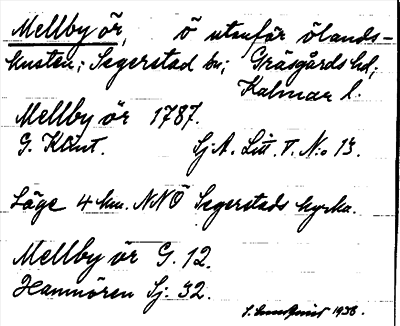 Mellby ör, ö utanför ölands-
kusten; Segerstad sn; Gräsgårds hd;
Kalmar l.
Mellby ör 1787.
G. Klint. SjA. Litt. T. N:o 13.
Läge 4 km. NNÖ Segerstads kyrka.
Mellby ör G. 12.
Hamnören Sj. 32.
1938.